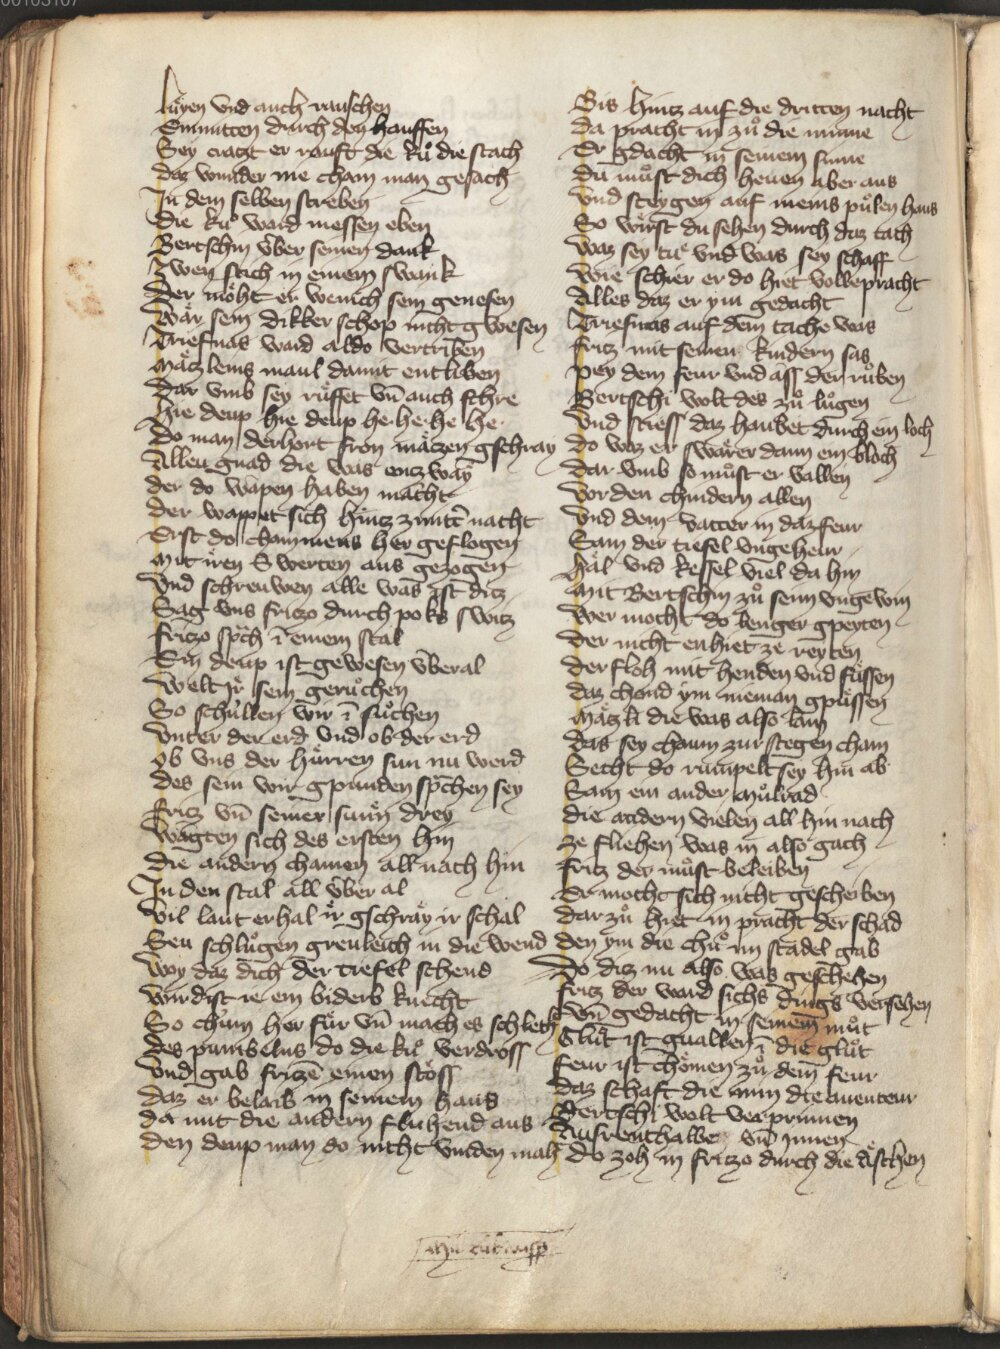 00103107
luͤyen vnd auch rauschen
Enmitten durch den hauffen
Sey cratzt er rauft die kuͦ die stach
Daz wunder nie cham man gesach
In dem selben streben
Die kuͦ ward messen eben
Bertschin v̈ber seinen dank
Zwen stich in einem swank
Der möht er wenich sein genesen
Wär sein dikker schop nicht gwesen
Triefnas ward aldo vertriben
Mätzleins maul damit entliben
Dar vmb sey rüffet vn̄ auch schre
Hie deup hie deup he he he he
Do man derhort fron mätzen gschray
Allen gnad die was entzway
der do wapen haben macht
der wappet sich hintz zmittr̄ nacht
Dist do chammens her geflogen
mit iren Swerten aus gezogen
Vnd schreuwen alle was ist ditz
Sag vns fritzo durch poks switz
fritzo sp̄ch ī einem stal
Ein deup ist gewesen v̈beral
Welt ir̈ sein geruͦchen
So schüllen wir ī suͦchen
Vnter der erd vnd ob der erd
ob vns der hürren sun nu werd
des sein wir gpunden sp̄chen sey
fritz vn̄ seiner sün drey
Wagten sich des ersten hin
die andern chamen all nach him
In den stal all v̈ber al
Vil laut erhal ir̈ gschräy ir schal
Seu schluͦgen greuleich in die wend
Woy daz dich der tiefel schend
Würdist ie ein biderb knecht
So chüm her für vn̄ mach es schlecht
des pumbelns do die kuͦ verdross
Vnd gab fritzē einen stoss
daz er belaib in seinem haus
da mit die andern fluhend aus
den deup man do nicht vinden mah
Bis hintz auf die dritten nacht
Da pracht in zuͦ die minne
Er gdacht in seinem sinne
Du muͦst dich heuen aber aus
Vnd steygen auf meins puͦlen haus
So wirst du sehen durch daz tach
Waz sey tuͤ vnd was sey schaff
Wie schier er do hiet volbepracht
Alles daz er ym gedacht
Triefnas auf dem tache was
fritz mit seinen kindern sas
Pey dem feur vnd ass der ruͦben
Bertschi wolt des zuͦ luͦgen
Vnd stiess daz haubet durch ein loch
do waz er swärer dann ein bloch
Dar vmb so muͦst er vallen
Vor den chindern allen
Vnd dem vatter in daz feur
Sam der tiefel vngeheur
Häl vnd kessel viel da hin
Mit Bertschin zuͦ seim vngewin
Wer mocht do lenger gpeyten
Der nicht enhiet ze reyten
der floh mit henden vnd füssen
daz chond ym nieman gpüssen
Mätzli die was also lam
Das sey chaum zur stegen cham
Secht do rumpelt sey hin ab
Sam ein ander mülrad
die andern vielen all hin nach
ze fliehen was in also gach
fritz der muͦst beleiben
Er mocht sich nicht gescheiben
dar zuͦ hiet in pracht der schad
den ym die chuͦ im stadel gab
Do ditz nu also was geschehen
fritz der ward sichs dings versehen
Vn̄ gedacht in seinem muͦt
Gluͦt ist guallen ī die gluͦt
feur ist chömen zuͦ dem feur
daz schaft die min die auenteur
Bertschi wolt verprinnen
Aussrenthalbe vn̄ innen
Do zoh in fritzo durch die äschen